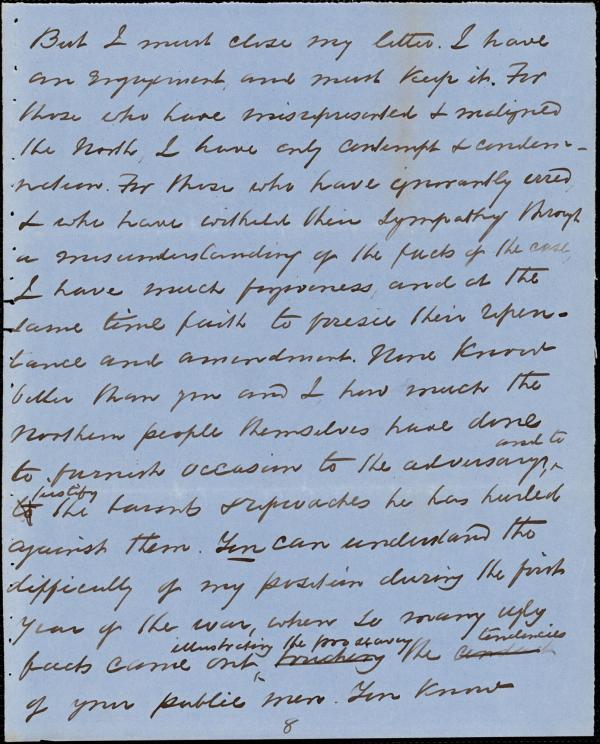 But I must close my letter. I have
an engagement, and must keep it. For
those who have misrepresented & maligned
the North, I have only contempt & condem-
nation. For those who have ignorantly erred,
& who have witheld their sympathy through
a misunderstanding of the facts of the case,
I have much forgiveness, and at the
same time faith to foresee their repen-
tance and amendment. None know
better than you and I how much the
Northern people themselves have done
and to
to furnish occasion to the adversary,
justify
the taunts & reproaches he has hurled
against them. You can understand the
difficulty of my position during the first
year of the war, when so many ugly
illustrating the proslavery tendencies
facts came out, touching the
of your public men. You know
8